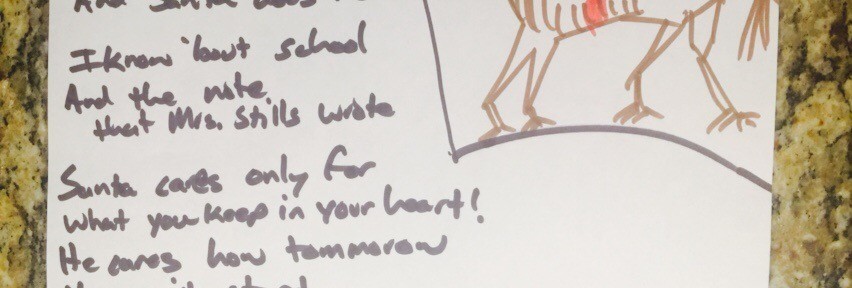 And Santa does
I know 'bout school
And the note
that Mrs. Stills wrote
Santa cares only for
what you keep in your heart!
He cares how tommorow